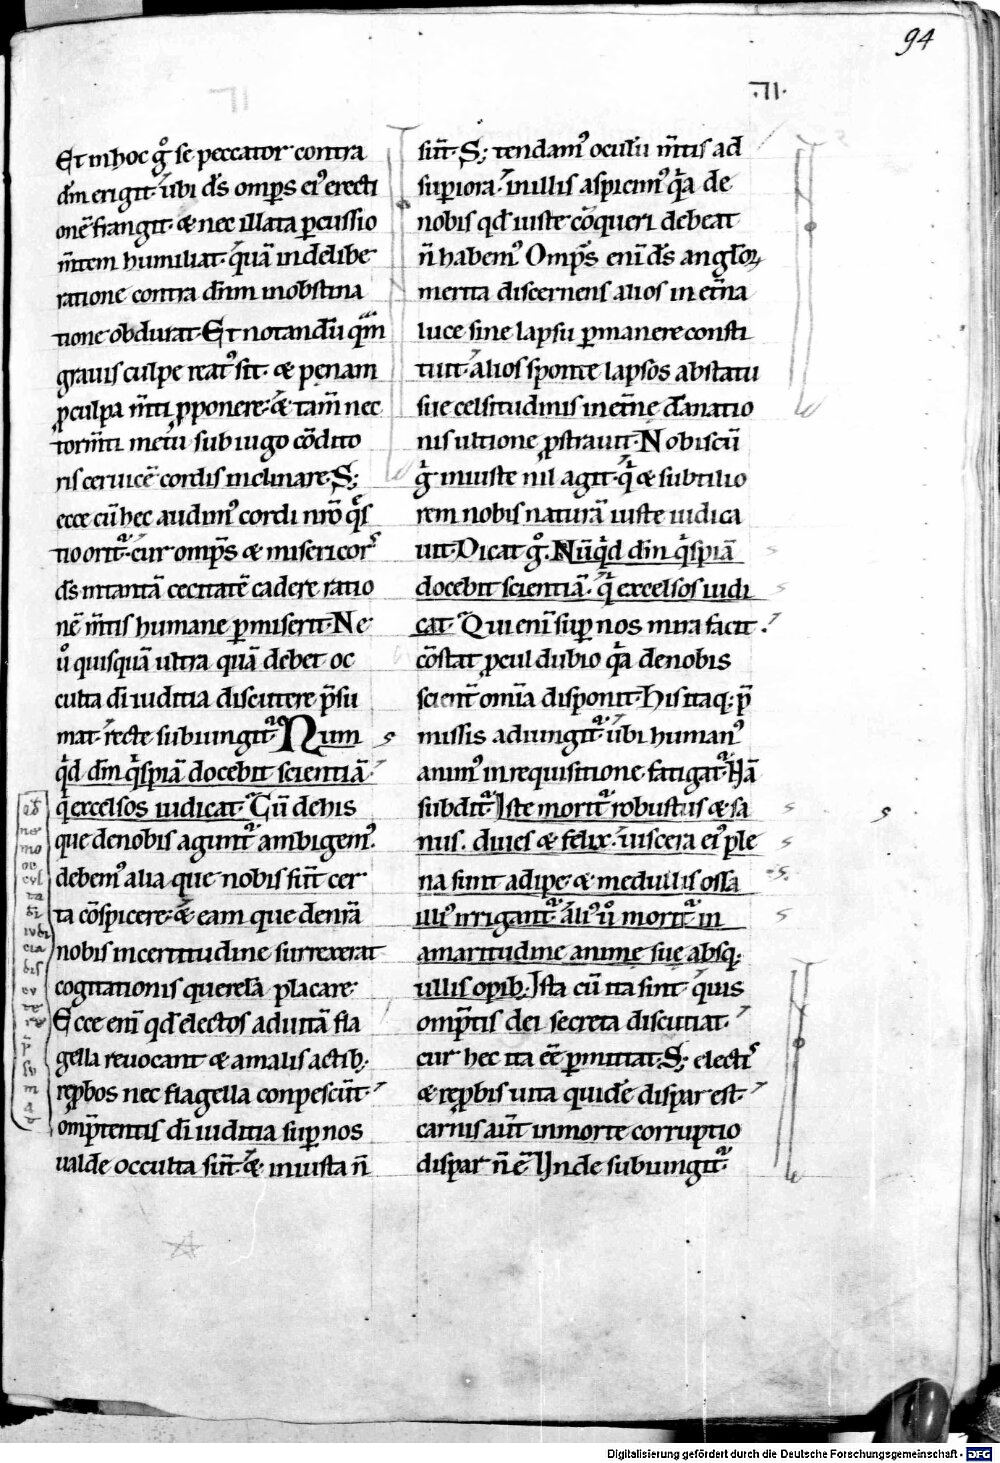 94
·VI·
Et in hoc g̊ se peccator contra
dm̄ erigit· ubi ds̄ omp̄s ei᾿ erecti
onē frangit· & nec illata ꝑcussio
m̄tem humiliat· quā indelibe
ratione contra dn̄m in obstina
tione obdurat· Et notandū qm̄
grauis culpe reat᾿ sit· & penam
ꝓ culpa m̄ti ꝓponere· & tam̄ nec
torm̄ti metu sub iugo cōdito
ris ceruicē cordis inclinare· S;
ecce cū hec audim᾿ cordi nrō q̄s
tio orit᷑· cur omp̄s & misericors
ds̄ in tantā cecitatē cadere ratio
nē m̄tis humane ꝑmiserit· Ne
u̾ quisquā ultra quā debet oc
culta dī iuditia discutere p̄su
mat· recte subiungit᷑· Num
qd̄ dm̄ qͥspiā docebit scientiā·
qͥ excelsos iudicat· Cū de his
que de nobis agunt᷑ ambigem᾿·
debem᾿ alia que nobis sūt cer
ta cōspicere· & eam que de n̄ra
nobis incertitudine surrexerat
cogitationis querelā placare·
Ecce enī qd̄ electos ad uitā fla
gella reuocant & a malis actib;
reꝓbos nec flagella conpescūt·
omp̄tentis dī iuditia suꝑ nos
ualde occulta sūt· & iniusta n̄
ne
mo
oc
cul
ta
dī
iudi
cia
dis
cu
te
re
p̄
su
m
a
sūt· S; tendam᾿ oculū m̄tis ad
superiora· in illis aspiciem᾿ qͥa de
nobis qd̄ iuste cōqueri debeat
n̄ habem᾿ Omp̄s enī ds̄ angłoꝝ
merita discernens alios in et̄na
luce sine lapsu ꝑmanere consti
tuit· alios sponte lapsos a statu
sue celsitudinis in et̄ne dānatio
nis ultione ꝓstrauit· Nobiscū
g̊ iniuste nil agit· qͥ & subtilio
rem nobis naturā iuste iudica
uit· Dicat g̊· Nūqͥd dm̄ qͥspiā
docebit scientiā· qͥ excelsos iudi
cat· Qui enī suꝑ nos mira facit·
cōstat ꝓcul dubio qͥa de nobis
scient̄ omīa disponit· His itaq; p̄
missis adiungit᷑· ubi human᾿
anim᾿ in requisitione fatigat᷑· Nā
subdit᷑· Iste morit᷑ robustus & sa
nus· diues & felix· uiscera ei᾿ ple
na sunt adipe· & medullis ossa
illi᾿ irrigant᷑· ali᾿ u̾ morit᷑ in
amaritudine anime sue absq;
ullis opib;· Ista cū ita sint· quis
omp̄tis dei secreta discutiat·
cur hec ita eē ꝑmittat· S; electis
& reꝓbis uita quidē dispar est·
carnis aut̄ in morte corruptio
dispar n̄ ē· Unde subiungit᷑·
Digitalisierung gefördert durch die Deutsche Forschungsgemeinschaft - DFG